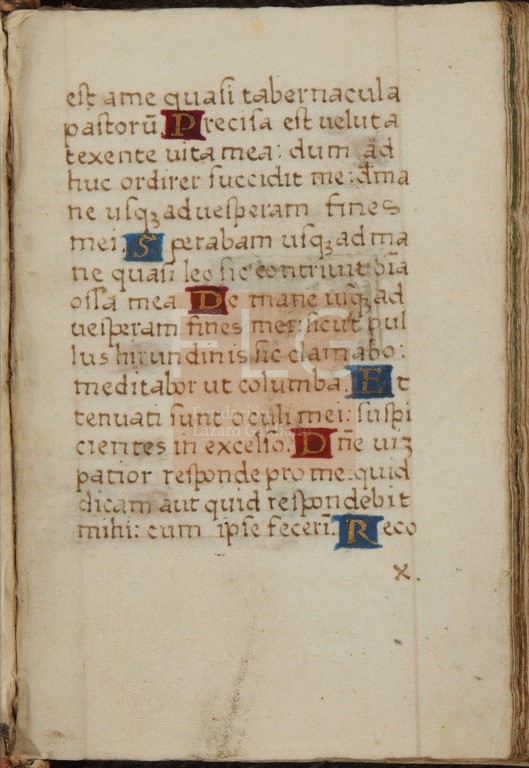 est ame quasi tabernacula
pastorū. Precisa est velut a
texente vita mea: dum ad
huc ordirer succidit me: d̄ma
ne usqꝫ ad vesperam fines
mei. Sperabam usqꝫ ad ma
ne quasi leo sic contrivit oīa
ossa mea De mane usqꝫ ad
vesperam fines mei: sicut pul
lus hirundinis sic clamabo:
meditabor ut columba. Et
tenuati sunt oculi mei: suspi
cientes in excelso. Dn̄e viꝫ
patior responde pro me: quid
dicam aut quid respondebit
mihi: cum ipse fecerī. Reco
x.
FLG
Fundación
Lázaro Galdiano